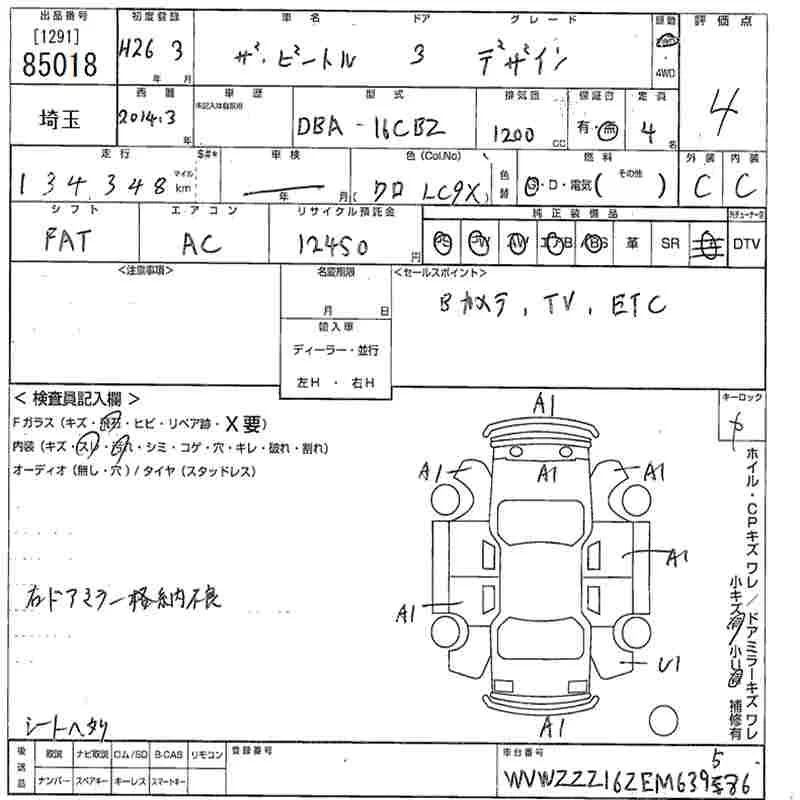 出品番号 初度登録 車名 ドア グレード 駆動 評価点
[1291]
85018
H26 3
年 月
ザ・ビートル 3 デザイン
4WD
4
埼玉
西暦 車歴 型式 排気量 保証書 定員
未記入は自家用
2014.3
年
DBA-16CBZ
1200 cc
有・無
4 名
走行 $#* 車検 色(Col.No) 燃料 外装 内装
134,348
マイル
km
年 月
(クロ LC9X)
色替
G・D・電気( その他 )
C C
シフト エアコン リサイクル預託金 純正装備品
FAT AC 12450 円
PS PW AW エアB ABS 革 SR ナビ DTV
<注意事項> 名変期限 <セールスポイント>
月 日
Bカメラ, TV, ETC
輸入車
ディーラー・並行
左H ・ 右H
< 検査員記入欄 >
Fガラス (キズ・飛石・ヒビ・リペア跡・X要)
内装 (キズ・スレ・汚れ・シミ・コゲ・穴・キレ・破れ・割れ)
オーディオ (無し・穴) / タイヤ (スタッドレス)
キーロック
A1
A1 A1 A1
A1
A1
U1
A1
ホイル・CPキズ ワレ / ドアミラーキズ ワレ
小キズ有 小U有 補修有
右ドアミラー格納不良
シートヘタリ
後送品 取説 ナビ取説 ロム/SD B-CAS リモコン 登録番号 車台番号
ナンバー スペアキー キーレス スマートキー
5
WVWZZZ16ZEM639586